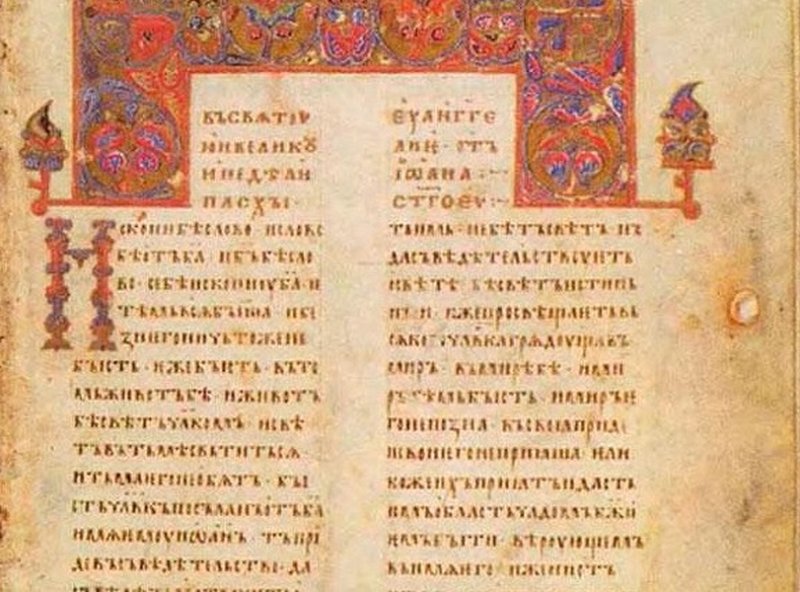 ВЪСВѦТꙊ
ИВЕЛИКꙊ
НЕДѢЛИ
ПАСХЫ·
ЕУАНГГЕ
ЛИѤ·ОТЪ
ІѠАНА
СТГОЕУ
ИСКОНИБѢСЛОВО·ИСЛОВО
БѢОТЪБА·ИБЪБѢСЛО
ВО·СЕБѢИСКОНИУБА·И
ТѢМЬВСѦБЫША·ИБЕ
ЗНЕГОНИЧЬТОЖЕНЕ
БЫСТЬ·ИЖЕБЫСТЬ·ВЪТО
МЬЖИВОТЪБѢ·ИЖИВОТЪ
БѢСВѢТЪЧЛКОМЪ·ИСВѢ
ТЪВЪТЬМѢСВѢТИТЬСѦ
ИТЬМАѤГОНЕОБѦТЪ·БЫ
СТЬЧЛКЪПОСЪЛАНЪОТЪБА
ИМѦѤМОУИѠАНЪ·ТЪПРИ
ДЕВЪСЪВѢДѢТЕЛЬСТВО·ДА
НЕБѢТЪСВѢТЪНЪ
ДАСЪВѢДѢТЕЛЬСТВУѤТЪ
ОСВѢТѢ·БѢСВѢТЪИСТИНЬ
НЫИ·ИЖЕПРОСВѢЩАѤТЬВЬ
СѦКОГОЧЛКАГРѦДОУЩАВЪ
МИРЪ·ВЪМИРѢБѢ·ИМИ
РЪТѢМЬБЫСТЬ·ИМИРЪѤ
ГОНЕПОЗНА·ВЪСВОꙖПРИДЕ
ИСВОИѤГОНЕПРИꙖША·ѤЛИ
КОЖЕИХЪПРИꙖТЪИДАСТЬ
ИМЪОБЛАСТЬЧАДОМЪБЖИ
ѤМЪБЫТИ·ВѢРОУЮЩЕМЪ
ВЪИМѦѤГО·ИЖЕНИОТЪ